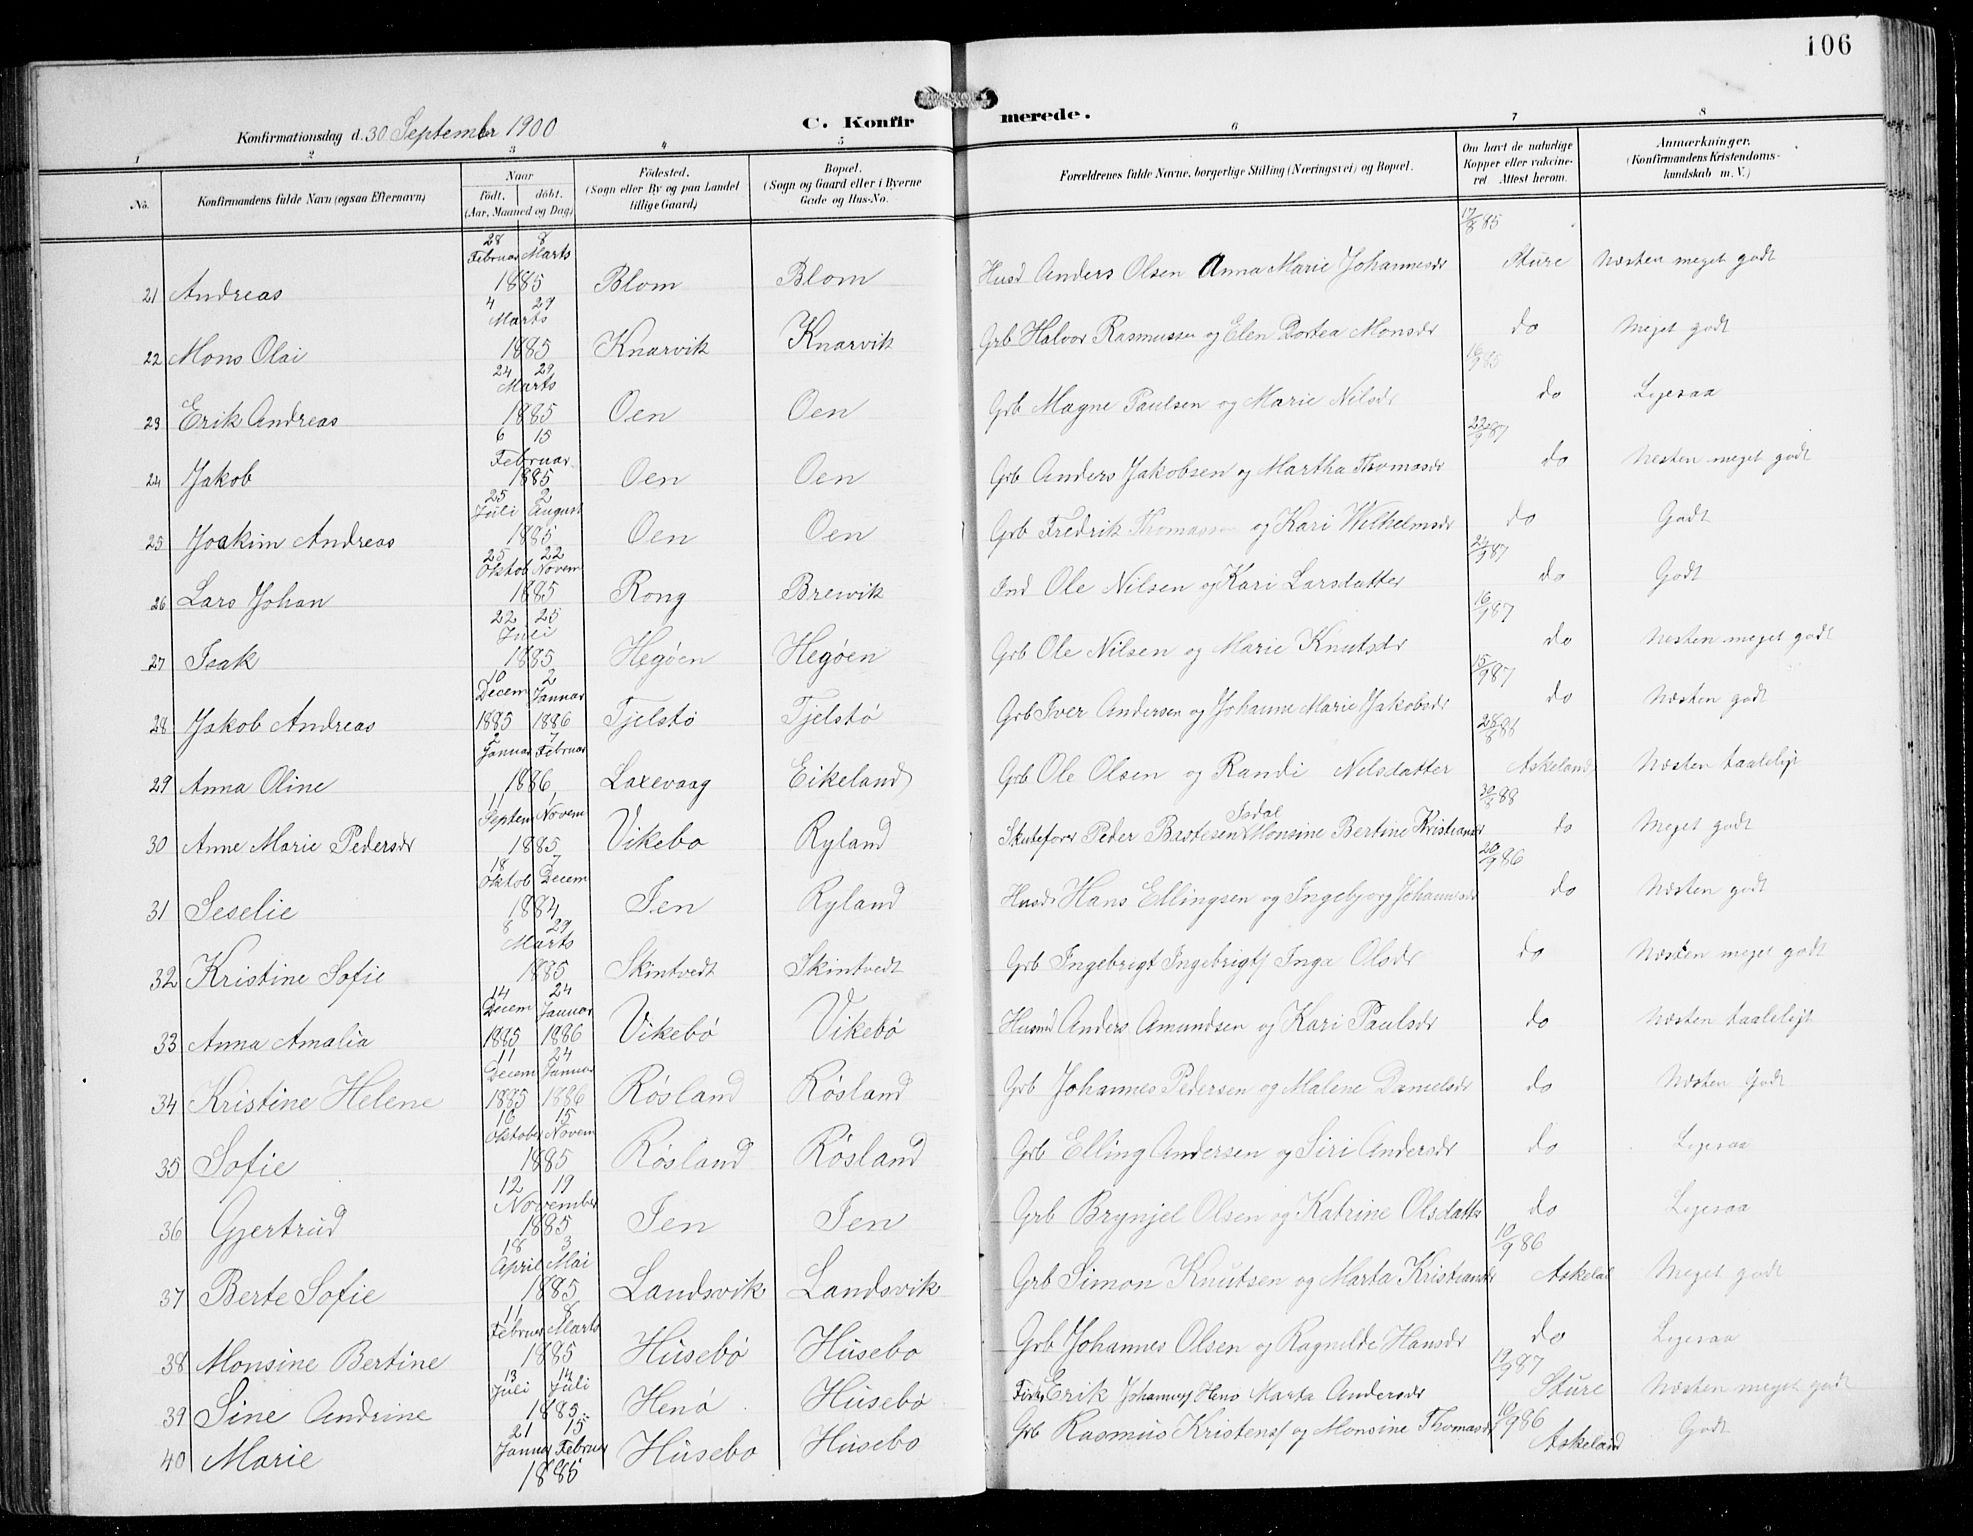 106
Konfirmationsdag d. 30 September 1900
C. Konfirmerede.
1 2 3 4 5 6 7 8
No. Konfirmandens fulde Navn (ogsaa Efternavn) Naar Födt. döbt. (Aar, Maaned og Dag) Födested. (Sogn eller By og paa Landet tillige Gaard) Bopæl. (Sogn og Gaard eller i Byerne Gade og Hus-No. Forældrenes fulde Navne, borgerlige Stilling (Næringsvei) og Bopæl. Om havt de naturlige Kopper eller vakcineret Attest herom. Anmærkninger. (Konfirmandens Kristendomskundskab m. V.)
21 Andreas 28 Februar 8 Marts 1885 Blom Blom Husd Anders Olsen Anna Marie Johannesdr 17/8 85 Sture Næsten meget godt
22 Mons Olai 4 29 Marts 1885 Knarvik Knarvik Grb Halvor Rasmussen og Elen Dortea Monsdr do Meget godt
23 Erik Andreas 24 29 Marts 1885 Oen Oen Grb Magne Paulsen og Marie Nilsdr 16/9 85 do Ligesaa
24 Jakob 6 15 Februar 1885 Oen Oen Grb Anders Jakobsen og Martha Thomasdr 22/9 87 do Næsten meget godt
25 Joakim Andreas 25 Juli 2 August 1885 Oen Oen Grb Fredrik Thomassen og Kari Wilhelmsdr do Godt
26 Lars Johan 25 Oktob 22 Novem 1885 Rong Breivik Ind Ole Nilsen og Kari Larsdatter 24/9 87 do Godt
27 Isak 22 25 Juli 1885 Hegøen Hegøen Grb Ole Nilsen og Marie Knutsdr 16/9 87 do Næsten meget godt
28 Jakob Andreas 10 Decem 1885 2 Januar 1886 Tjelstø Tjelstø Grb Iver Andersen og Johanne Marie Jakobsdr 15/9 87 do Næsten godt
29 Anna Oline 2 Januar 7 Februar 1886 Laxevaag Eikeland Grb Ole Olsen og Randi Nilsdatter 28/8 88 Askeland Næsten taaleligt
30 Anne Marie Pedersdr 11 Septem 1 Novem 1885 Vikebø Ryland Skuteforer Peder Bastesen Isdal Monsine Bertine Kristiansdr 30/8 88 do Meget godt
31 Seselie 18 Oktob 7 Decem 1884 Ien Ryland Husd Hans Ellingsen og Ingebjorg Johannesdr 20/9 86 do Næsten godt
32 Kristine Sofie 8 29 Marts 1885 Skintvedt Skintvedt Grb Ingebrigt Ingebrigts Inga Olsdr do Næsten meget godt
33 Anna Amalia 14 Decem 1885 24 Januar 1886 Vikebø Vikebø Husmd Anders Amundsen og Kari Paulsdr do Næsten taaleligt
34 Kristine Helene 11 Decem 1885 24 Januar 1886 Røsland Røsland Grb Johannes Pedersen og Malene Danielsdr do Næsten Godt
35 Sofie 16 Oktober 15 Novem 1885 Røsland Røsland Grb Elling Andersen og Siri Andersdr do Ligesaa
36 Gjertrud 12 19 November 1885 Ien Ien Grb Brynjel Olsen og Katrine Olsdatter do Ligesaa
37 Berte Sofie 18 April 3 Mai 1885 Landsvik Landsvik Grb Simon Knutsen og Marta Kristiansdr 10/9 86 Askelad Meget godt
38 Monsine Bertine 11 Februar 8 Marts 1885 Husebø Husebø Grb Johannes Olsen og Ragnilde Hansdr do Ligesaa
39 Sine Andrine 13 Juli 14 Juli 1885 Henø Husebø Erik Johannes Henø Marta Andersdr 19/9 87 Sture Næsten meget godt
40 Marie 21 Januar 15 Februar 1885 Husebø Husebø Grb Rasmus Kristens og Monsine Thomasdr 10/9 86 Askeland Godt